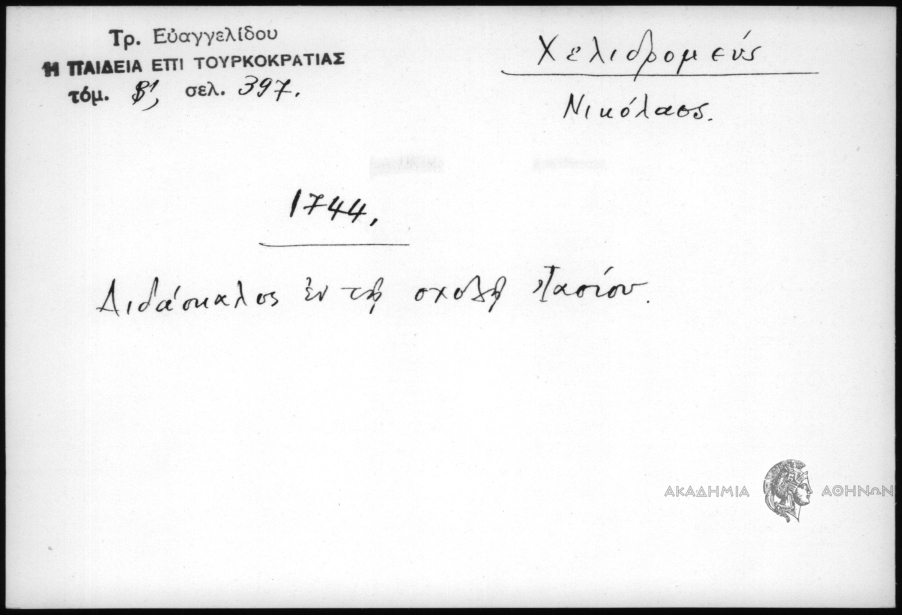 Τρ. Εὐαγγελίδου
Η ΠΑΙΔΕΙΑ ΕΠΙ ΤΟΥΡΚΟΚΡΑΤΙΑΣ
τόμ. Β', σελ. 397.
Χελιδρομεύς
Νικόλαος.
1744,
Διδάσκαλος ἐν τῇ σχολῇ Ἰασίου.
ΑΚΑΔΗΜΙΑ ΑΘΗΝΩΝ